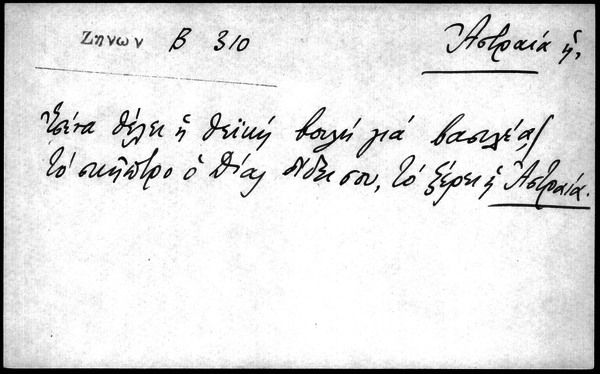 Ζήνων Β 310
Ἀστραιά ἡ,
Ἐσένα θέλει ἡ θεϊκή βουλή γιά βασιλέα/
τό σκῆπτρο ὁ Δίας δίδει σου, τό ξέρει ἡ Ἀστραιά.